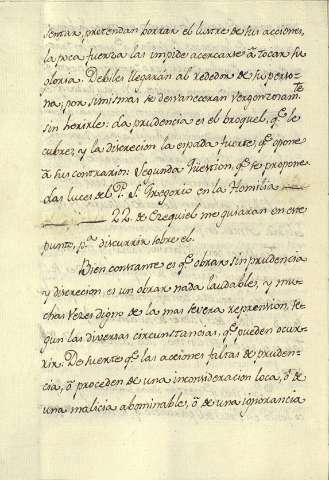 sentar, pretendan borrar el lustre de sus acciones,
la poca fuerza las impide acercarse â tocar su
gloria. Debiles llegarán al rededor de su perso-
na; por si mismas se desvanecerán vergonzosam.te
sin herirle: la prudencia es el broquel, q.e le
cubre; y la discrecion la espada fuerte, q.e opone
â sus contrarios. Segunda question, q.e se propone.
Las luces del P. S.n Gregorio en la Homilia
22. de Ezequiel me guiarán en este
punto, p.a discurrir sobre el.
Bien constante es q.e obrar sin prudencia
y discrecion, es un obrar nada laudable, y mu-
chas vezes digno de la mas severa reprension, se-
gun las diversas circunstancias, q.e pueden ocur-
rir. De suerte q.e las acciones faltas de pruden-
cia, ô proceden de una inconsideracion loca, ô de
una malicia abominable, ô de una ignorancia